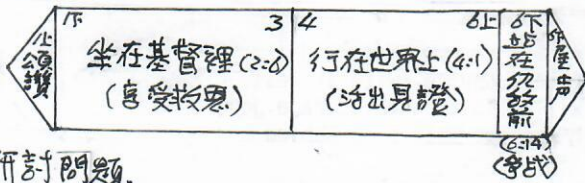 1上 頌讚
1下 3
坐在基督裡(2:6)
(享受救恩)
4 6上
行在世界上(4:1)
(活出見證)
6下 站在仇敵前
(6:14)
(争战)
尾声
研討問題.